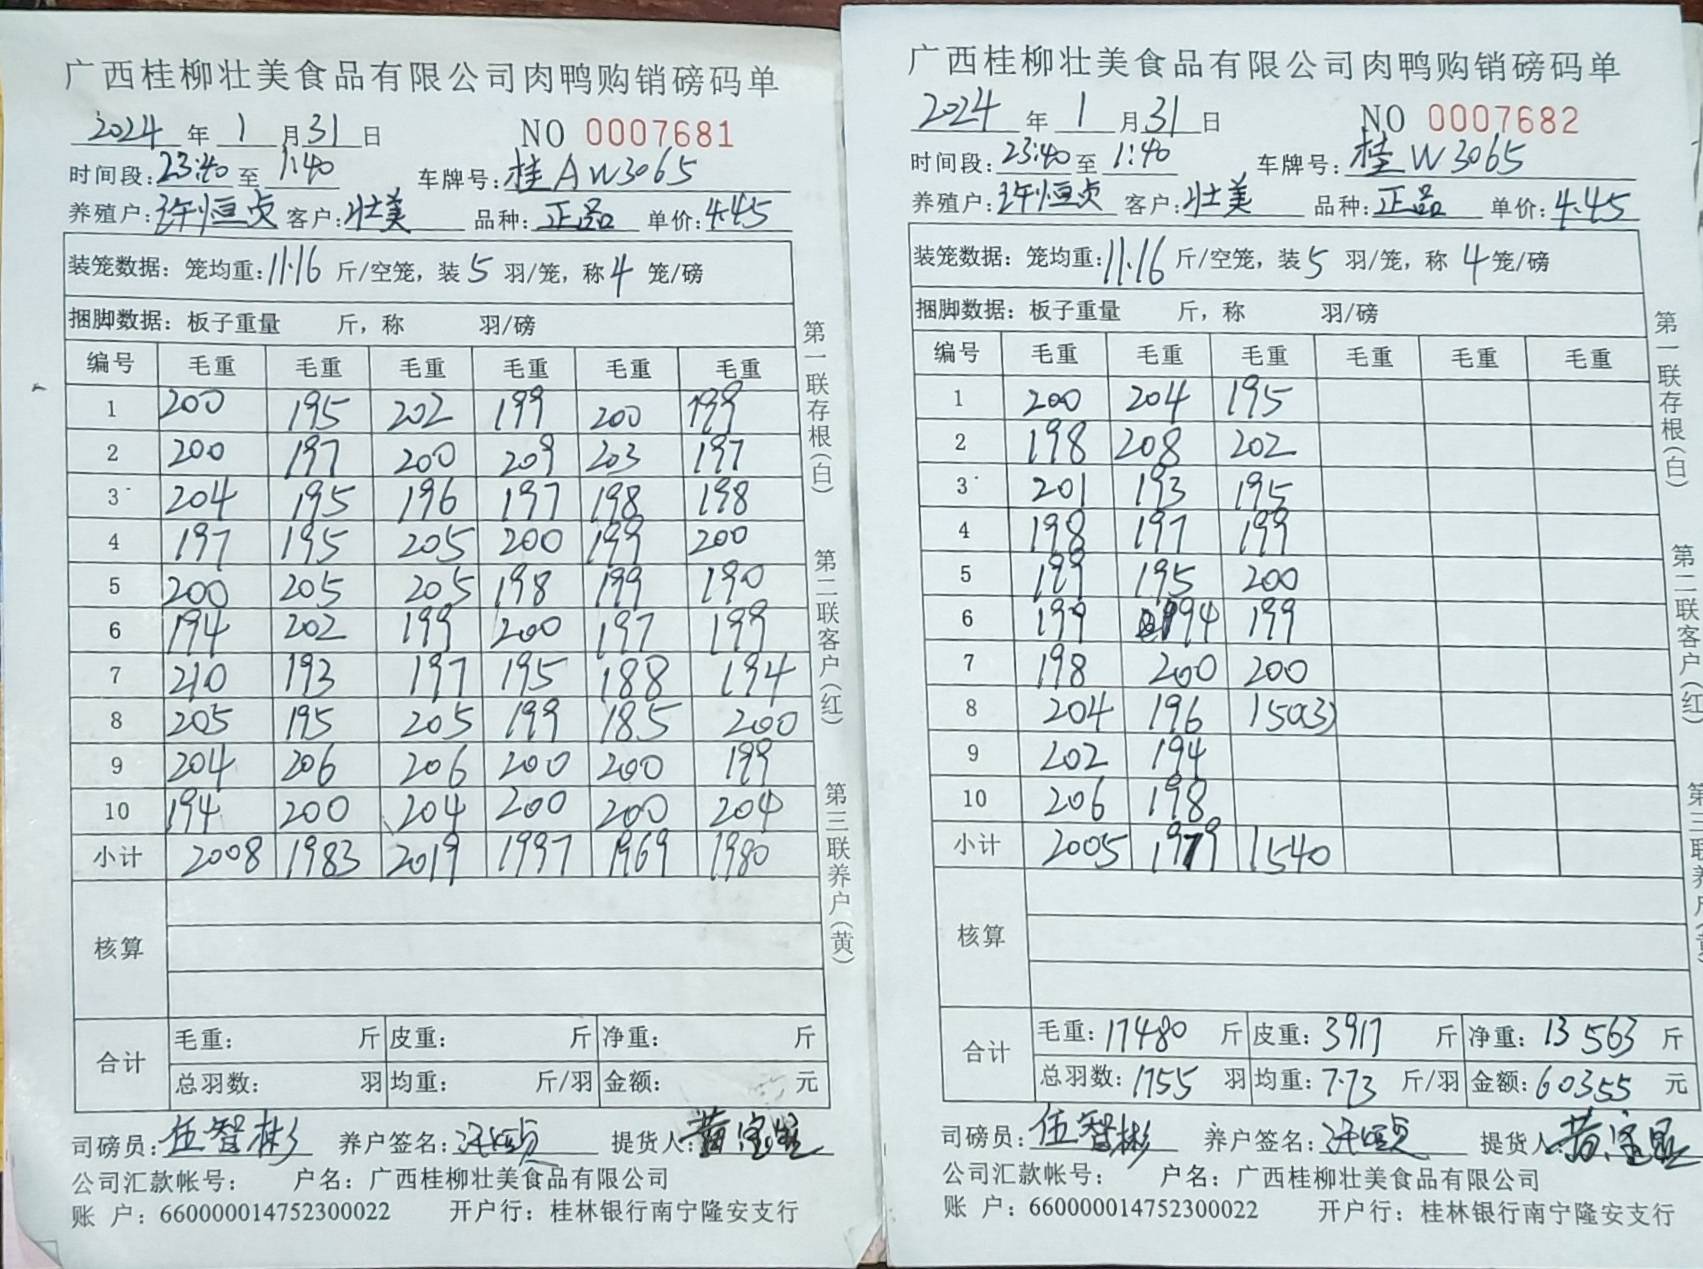 广西桂柳壮美食品有限公司肉鸭购销磅码单
2024 年 1 月 31 日 NO 0007681
时间段: 23:40 至 1:40 车牌号: 桂AW3065
养殖户: 许恒贞 客户: 壮美 品种: 正品 单价: 4.45
装笼数据: 笼均重: 11.16 斤/空笼, 装 5 羽/笼, 称 4 笼/磅
捆脚数据: 板子重量 斤, 称 羽/磅
编号 毛重 毛重 毛重 毛重 毛重 毛重
1 200 195 202 199 200 199
2 200 197 200 209 203 197
3 204 195 196 197 198 198
4 197 195 205 200 199 200
5 200 205 205 198 199 190
6 194 202 199 200 197 199
7 210 193 197 195 188 194
8 205 195 205 199 185 200
9 204 206 206 200 200 199
10 194 200 204 200 200 204
小计 2008 1983 2019 1997 1969 1980
核算
合计
毛重: 斤 皮重: 斤 净重: 斤
总羽数: 羽 均重: 斤/羽 金额: 元
司磅员: 伍智彬 养户签名: 提货人:
公司汇款帐号: 户名: 广西桂柳壮美食品有限公司
账 户: 660000014752300022 开户行: 桂林银行南宁隆安支行
第一联存根(白)
第二联客户(红)
第三联养户(黄)
广西桂柳壮美食品有限公司肉鸭购销磅码单
2024 年 1 月 31 日 NO 0007682
时间段: 23:40 至 1:40 车牌号: 桂W3065
养殖户: 许恒贞 客户: 壮美 品种: 正品 单价: 4.45
装笼数据: 笼均重: 11.16 斤/空笼, 装 5 羽/笼, 称 4 笼/磅
捆脚数据: 板子重量 斤, 称 羽/磅
编号 毛重 毛重 毛重 毛重 毛重 毛重
1 200 204 195
2 198 208 202
3 201 193 195
4 198 197 199
5 199 195 200
6 199 194 199
7 198 200 200
8 204 196 150(3)
9 202 194
10 206 198
小计 2005 1979 1540
核算
合计
毛重: 17480 斤 皮重: 3917 斤 净重: 13563 斤
总羽数: 1755 羽 均重: 7.73 斤/羽 金额: 60355 元
司磅员: 伍智彬 养户签名: 提货人:
公司汇款帐号: 户名: 广西桂柳壮美食品有限公司
账 户: 660000014752300022 开户行: 桂林银行南宁隆安支行
第一联存根(白)
第二联客户(红
第三联养户